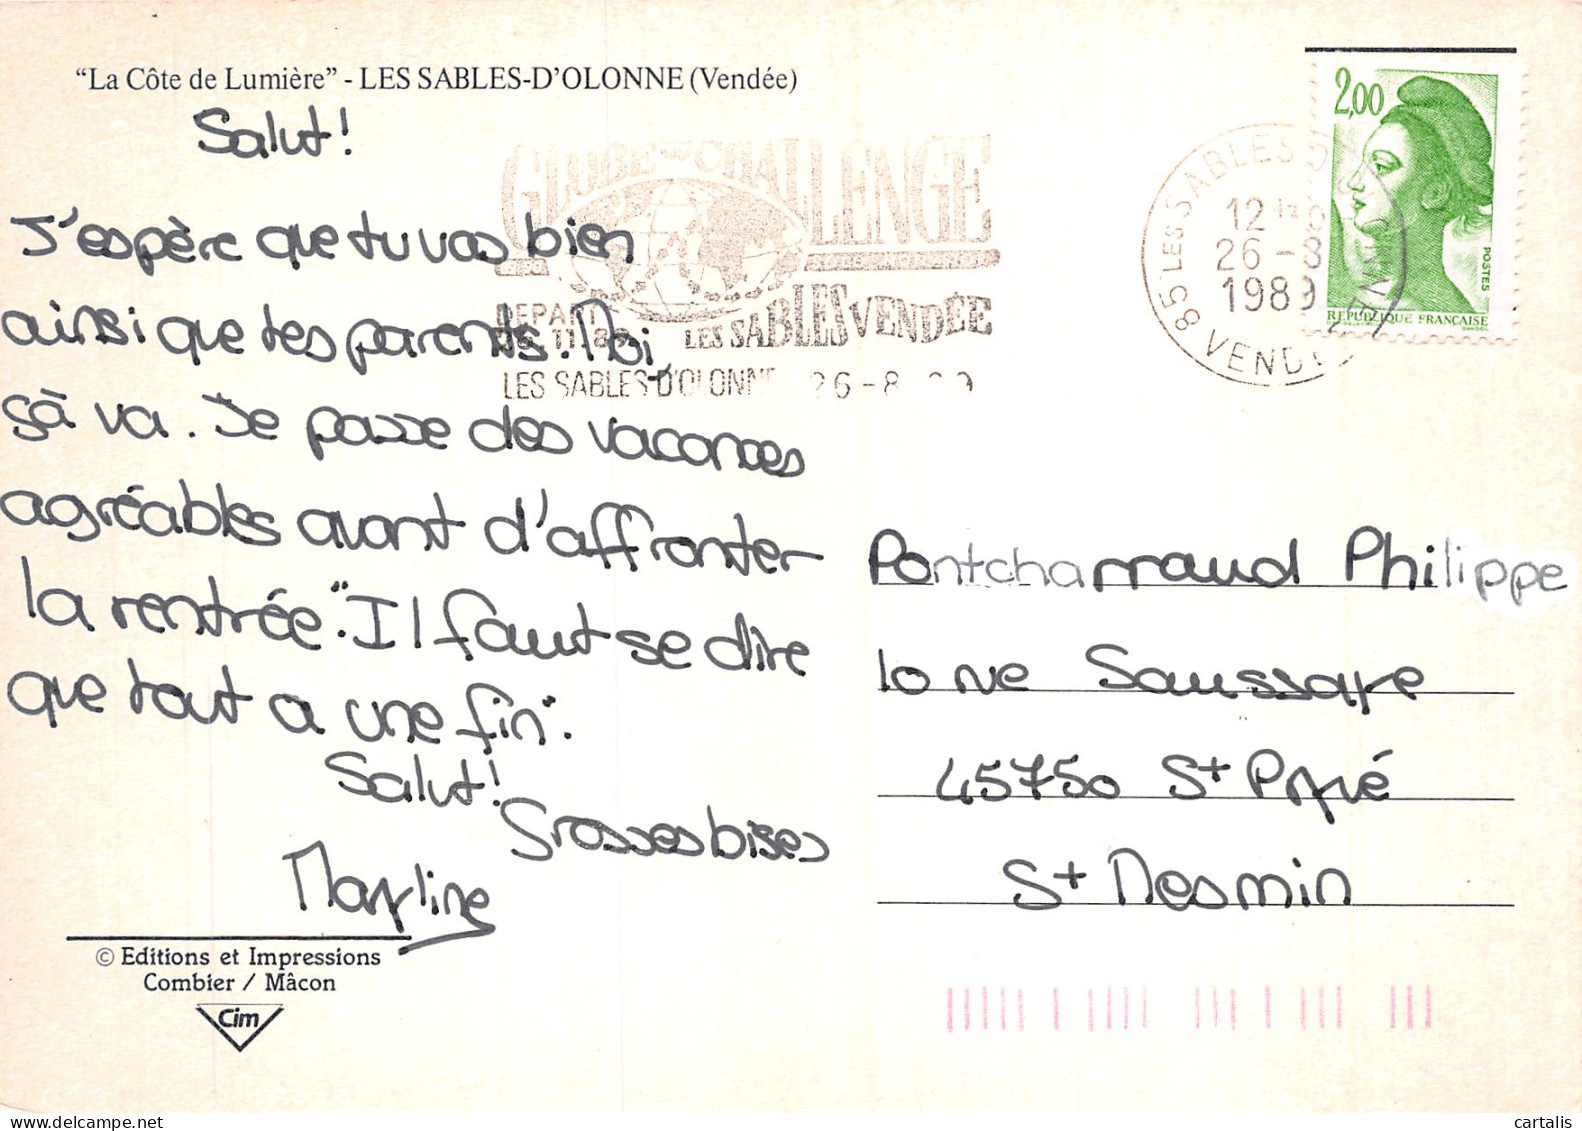 "La Côte de Lumière" - LES SABLES-D'OLONNE (Vendée)
Salut!
J'espère que tu vas bien
ainsi que tes parents. Moi,
sà va. Je passe des vacances
agréables avant d'affronter
la rentrée". Il faut se dire
que tout a une fin".
Salut!
Grosses bises
Maryline
© Editions et Impressions
Combier / Mâcon
Cim
GLOBE CHALLENGE
DEPART
11.89
LES SABLES VENDÉE
LES SABLES D'OLONNE 26-8
85 LES SABLES D'OLONNE
12 H
26-8
1989
VENDEE
2,00
POSTES
REPUBLIQUE FRANÇAISE
Pontcharraud Philippe
10 rue Saussaye
45750 St Pryvé
St Mesmin
cartalis